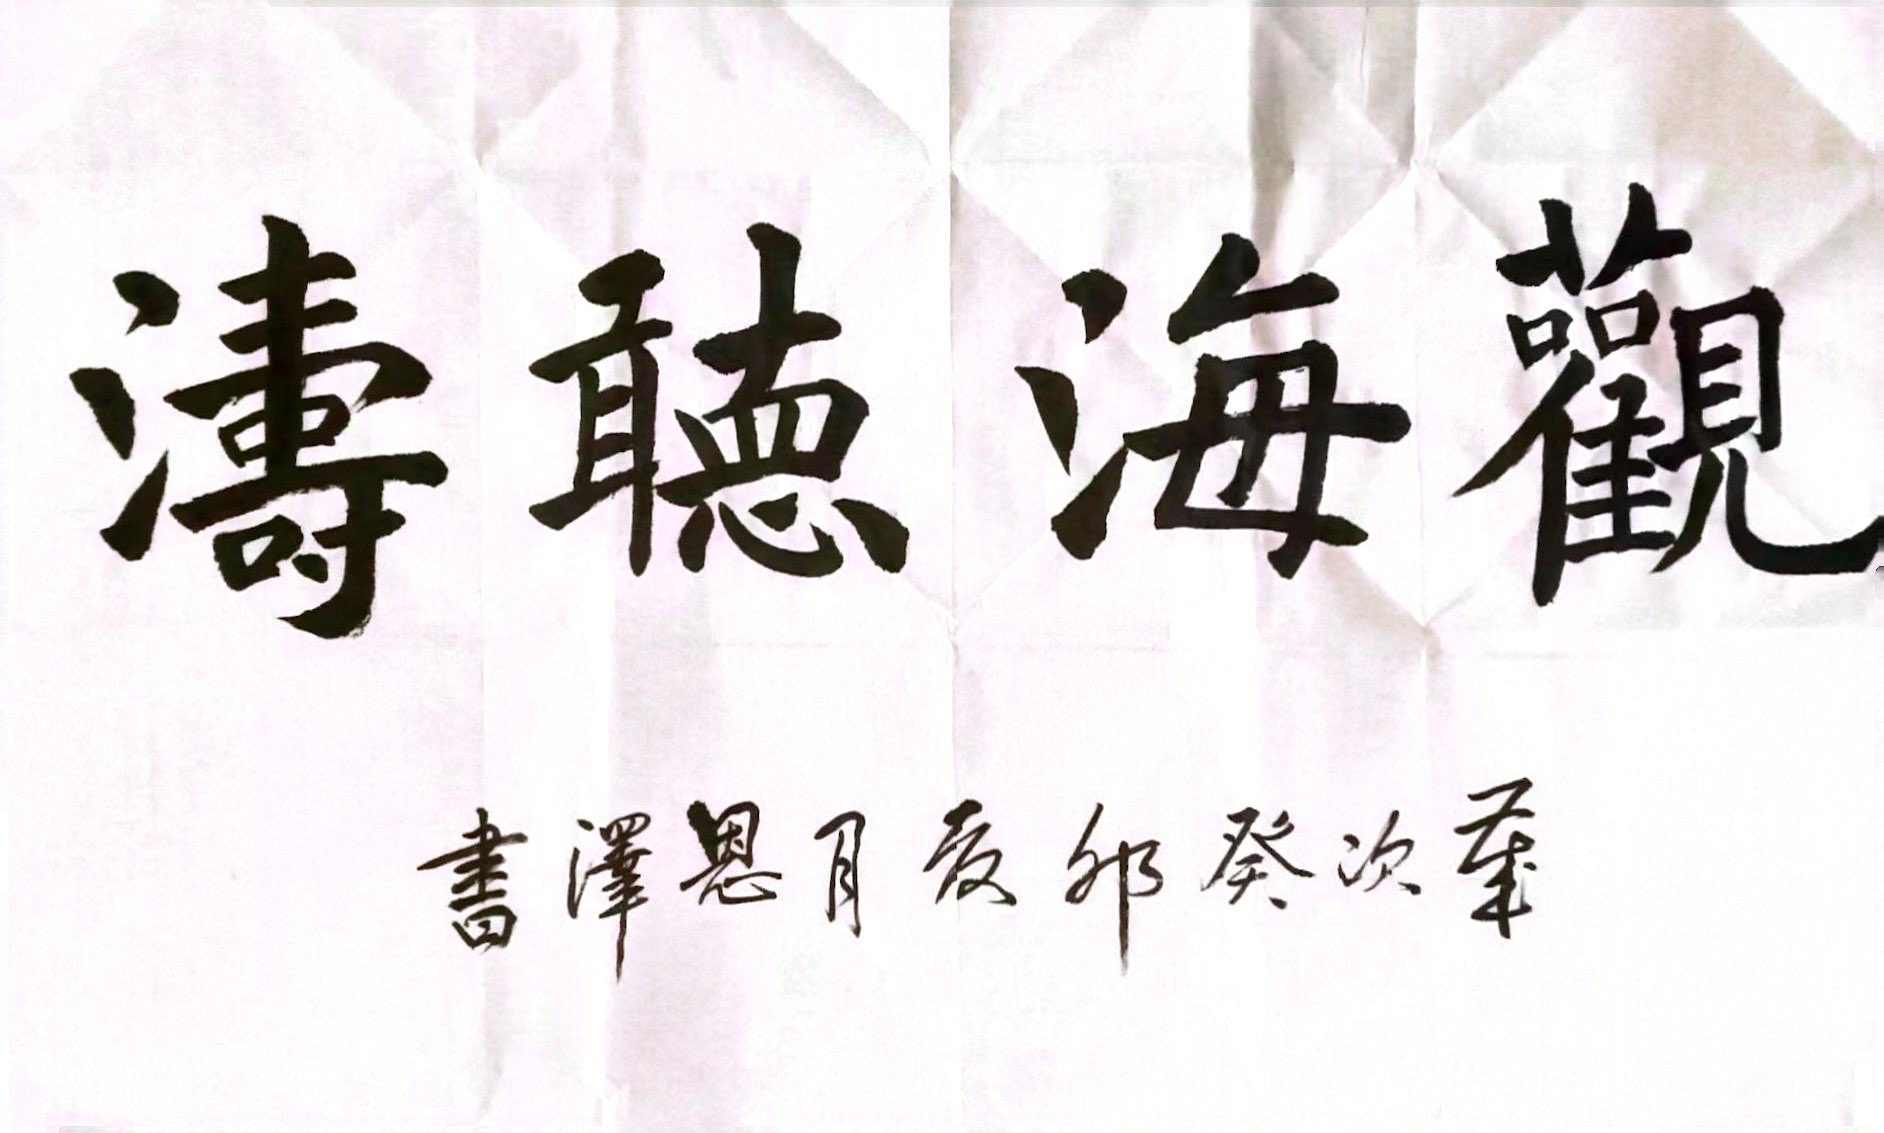 觀海聽濤
歲次癸卯夏月恩澤書